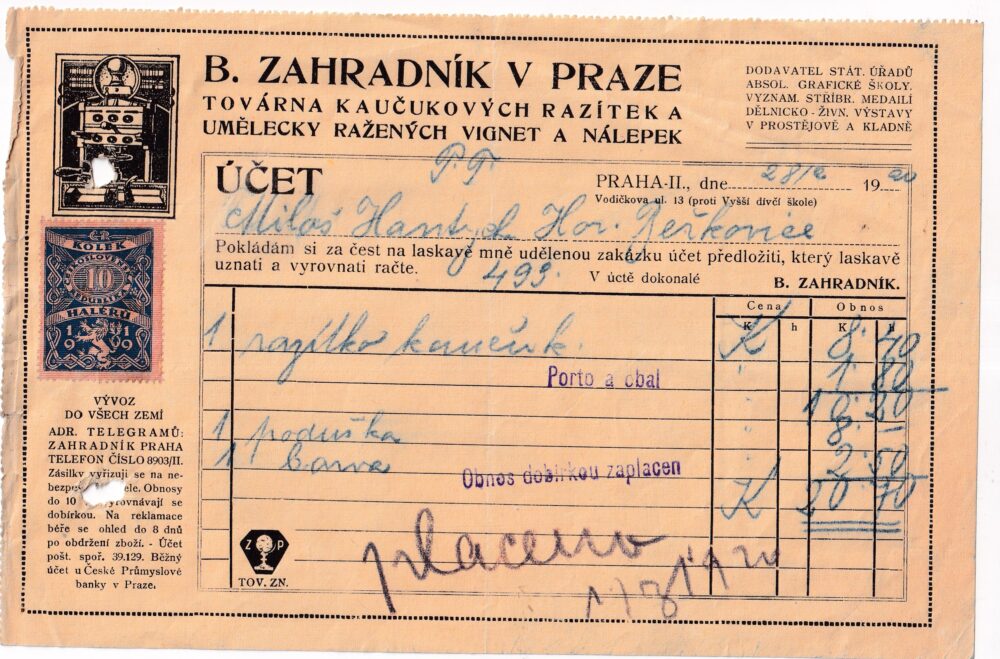 B. ZAHRADNÍK V PRAZE
TOVÁRNA KAUČUKOVÝCH RAZÍTEK A
UMĚLECKY RAŽENÝCH VIGNET A NÁLEPEK
DODAVATEL STÁT. ÚŘADŮ
ABSOL. GRAFICKÉ ŠKOLY.
VYZNAM. STŘÍBR. MEDAILÍ
DĚLNICKO - ŽIVN. VÝSTAVY
V PROSTĚJOVĚ A KLADNĚ
ÚČET
PRAHA-II., dne 28/2 1920
Vodičkova ul. 13 (proti Vyšší dívčí škole)
Miloš Hantych Hor.
Pokládám si za čest na laskavě mně udělenou zakázku účet předložiti, který laskavě
uznati a vyrovnati račte.
493.
V úctě dokonalé B. ZAHRADNÍK.
KOLEK
10
HALÉŘŮ
1919
Cena Obnos
K h K h
1 razítko kaučuk. K 8·40
Porto a obal 1 80
10·20
1 poduška 8·—
1 barva 2·50
Obnos dobírkou zaplacen
K 20 70
placeno
1920
VÝVOZ
DO VŠECH ZEMÍ
ADR. TELEGRAMŮ:
ZAHRADNÍK PRAHA
TELEFON ČÍSLO 8903/II.
Zásilky vyřizují se na ne-
Obnosy
do 10 vyrovnávají se
dobírkou. Na reklamace
běře se ohled do 8 dnů
po obdržení zboží. - Účet
pošt. spoř. 39.129. Běžný
účet u České Průmyslové
banky v Praze.
Z P
TOV. ZN.